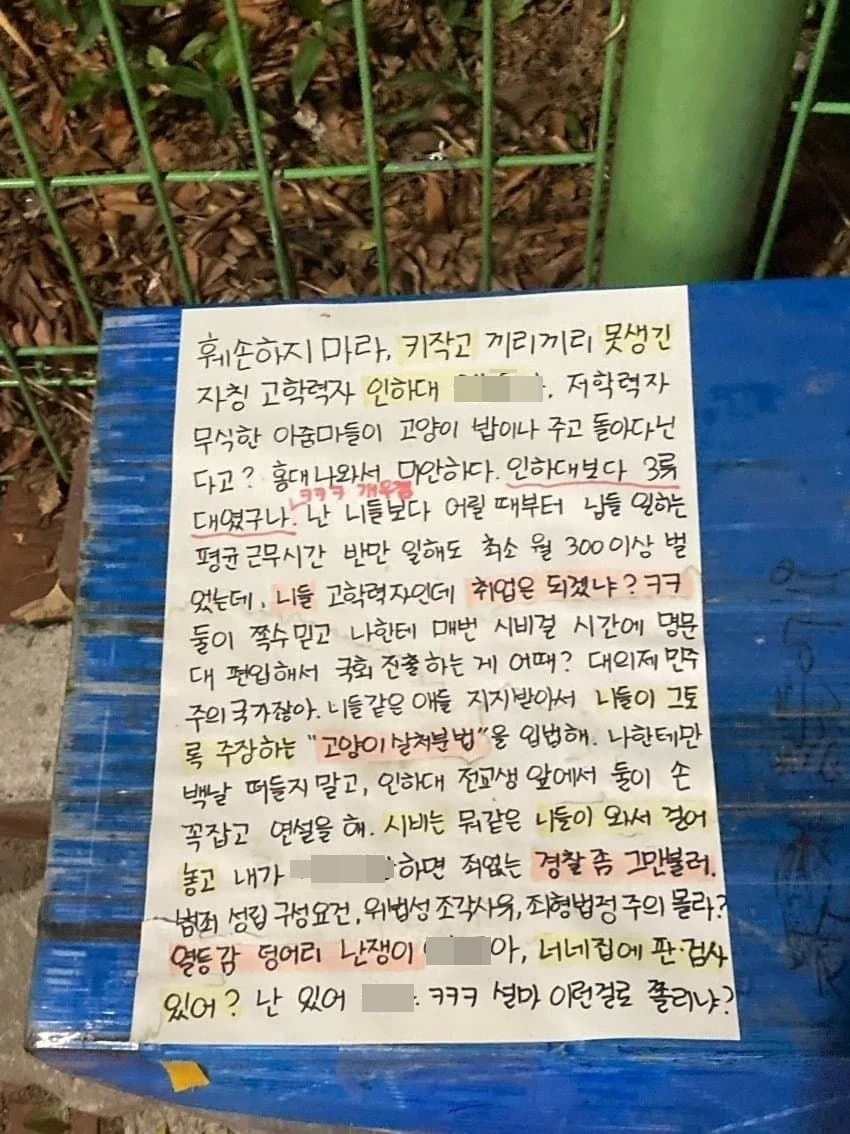 훼손하지 마라, 키작고 끼리끼리 못생긴
자칭 고학력자 인하대 . 저학력자
무식한 아줌마들이 고양이 밥이나 주고 돌아다닌
다고? 홍대 나와서 미안하다. 인하대보다 3류
ㅋㅋㅋ 개웃겨
대였구나. 난 니들보다 어릴 때부터 남들 일하는
평균 근무시간 반만 일해도 최소 월 300이상 벌
었는데, 니들 고학력자인데 취업은 되겠냐? ㅋㅋ
둘이 쪽수 믿고 나한테 매번 시비걸 시간에 명문
대 편입해서 국회 진출하는 게 어때? 대의제 민주
주의 국가잖아. 니들같은 애들 지지받아서 니들이 그토
록 주장하는 "고양이 살처분법"을 입법해. 나한테만
백날 떠들지 말고, 인하대 전교생 앞에서 둘이 손
꼭잡고 연설을 해. 시비는 뭐같은 니들이 와서 걸어
놓고 내가 하면 죄없는 경찰 좀 그만불러.
범죄 성립 구성요건, 위법성 조각사유, 죄형법정주의 몰라?
열등감 덩어리 난쟁이 아, 너네집에 판·검사
있어? 난 있어 ㅋㅋㅋ 설마 이런걸로 쫄리냐?